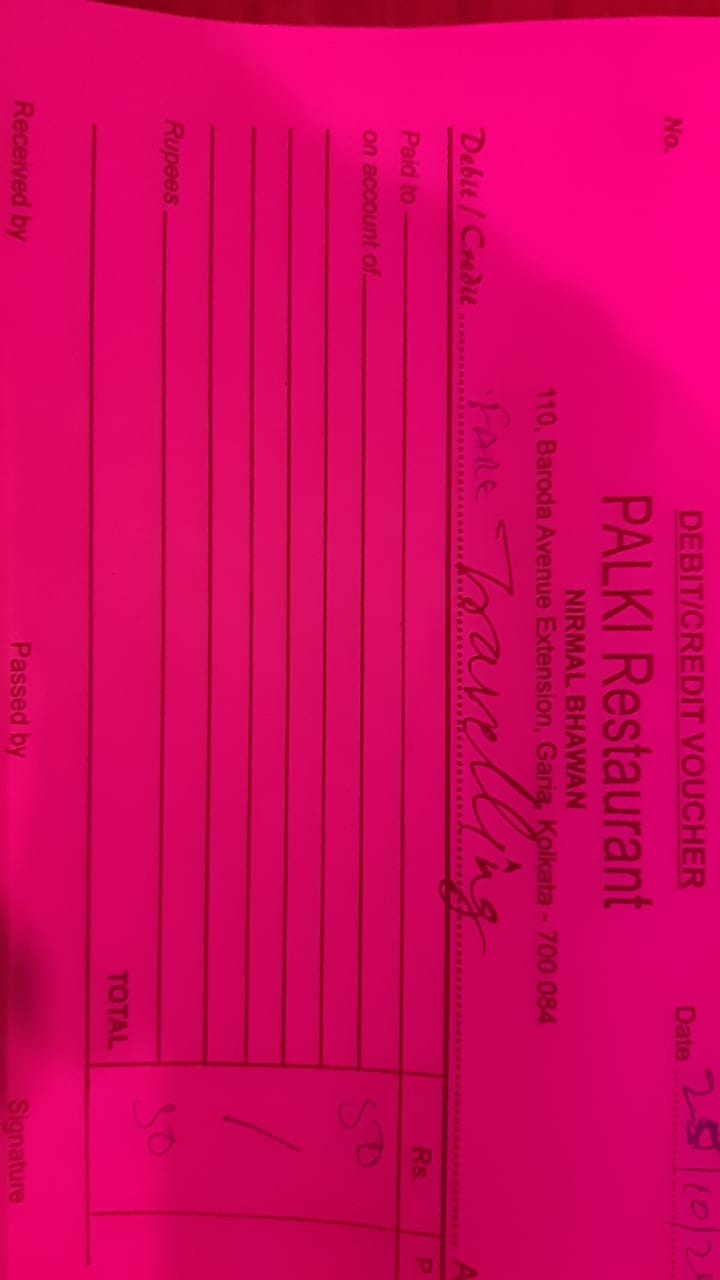 DEBIT/CREDIT VOUCHER
No. Date 28/10/2
PALKI Restaurant
NIRMAL BHAWAN
110, Baroda Avenue Extension, Garia, Kolkata - 700 084
Debit / Credit FARE Travelling A
Paid to Rs. P
on account of 50
Rupees
TOTAL 50
Received by Passed by Signature